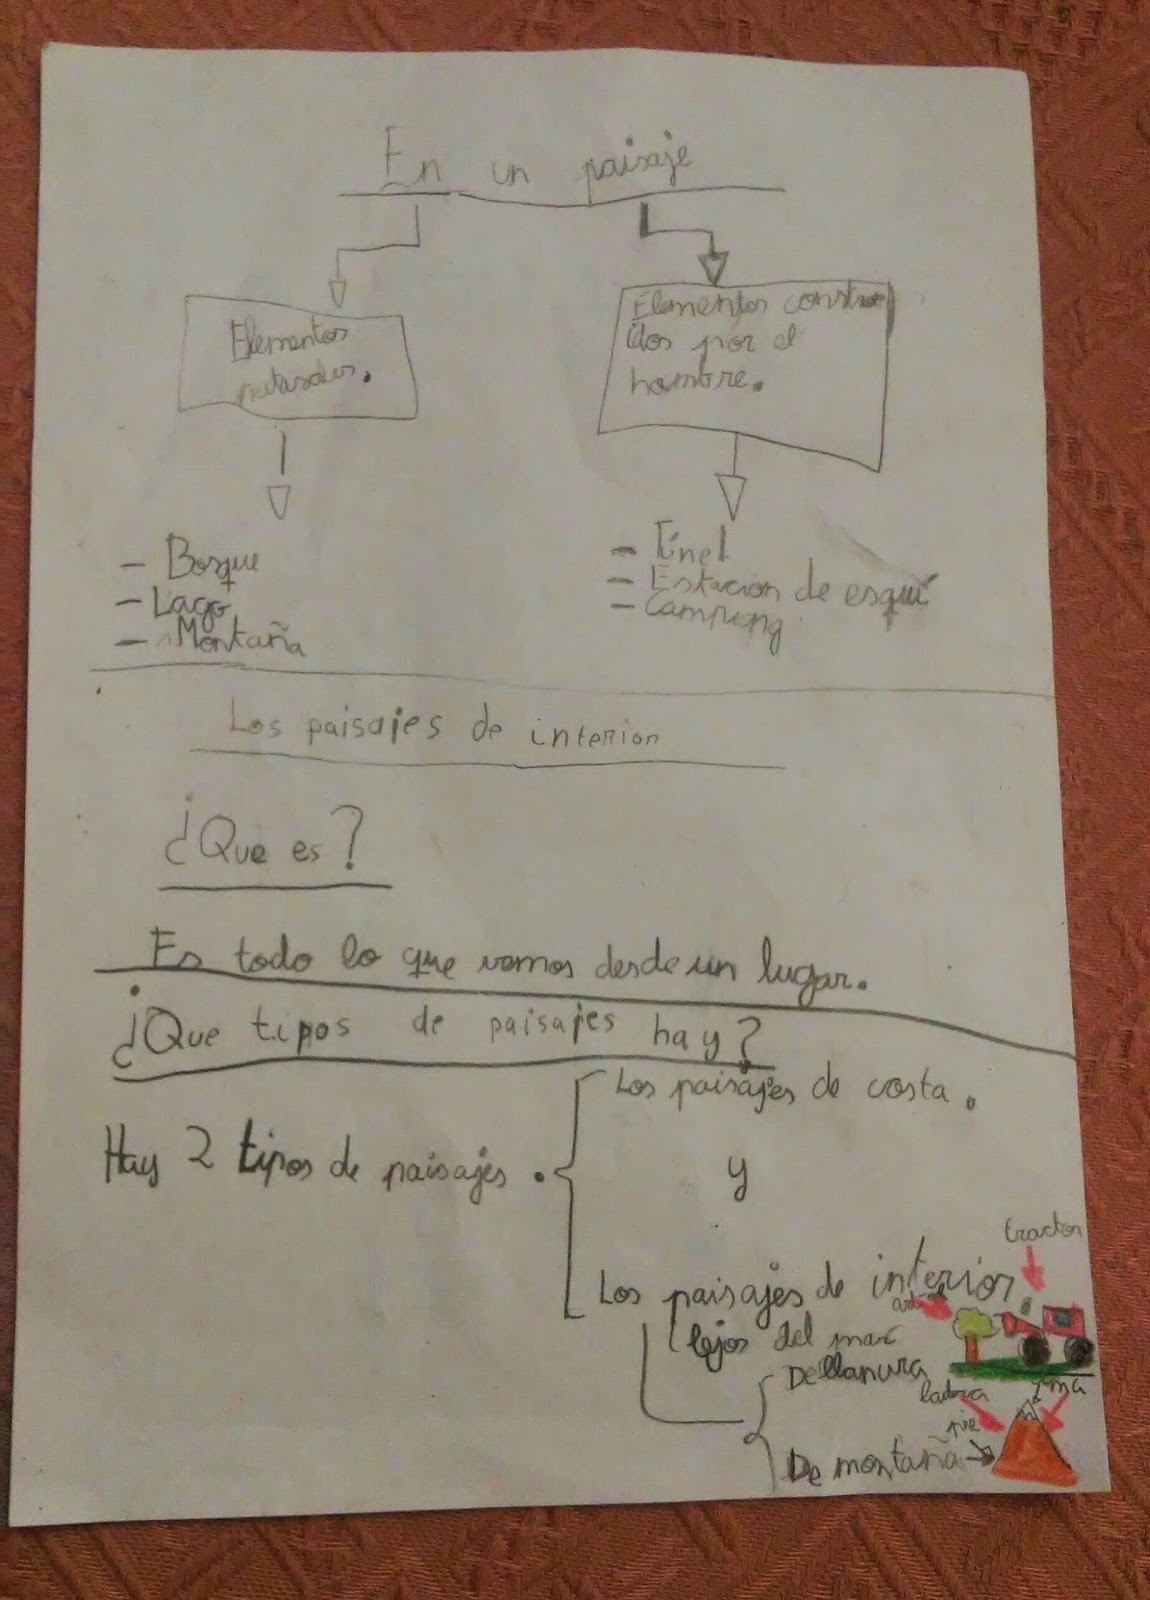 En un paisaje
Elementos
naturales.
Elementos constru
idos por el
hombre.
- Bosque
- Lago
- Montaña
- Túnel
- Estación de esquí
- Campiong
Los paisajes de interior
¿Que es?
Es todo lo que vemos desde un lugar.
¿Que tipos de paisajes hay?
Hay 2 tipos de paisajes.
Los paisajes de costa.
y
Los paisajes de interior
tractor
lejos del mar
De llanura
ladera
De montaña
pie